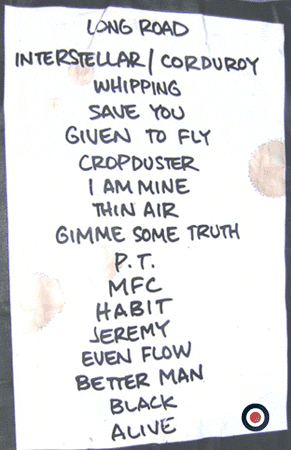 LONG ROAD
INTERSTELLAR / CORDUROY
WHIPPING
SAVE YOU
GIVEN TO FLY
CROPDUSTER
I AM MINE
THIN AIR
GIMME SOME TRUTH
P.T.
MFC
HABIT
JEREMY
EVEN FLOW
BETTER MAN
BLACK
ALIVE